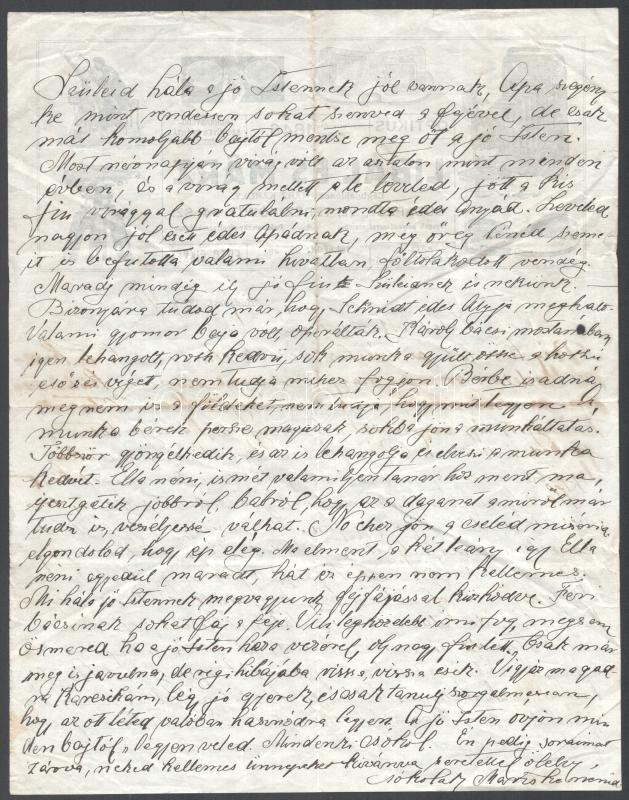 Szüleid hála a jó Istennek jól vannak, Apa szegény
ke mint rendessen sokat szenved a fejével, de csak
más komoljabb bajtól mentse meg őt a jó Isten.
Most névnapján virág volt az asztalon mint minden
évben, és a virág mellett a te leveled, jött a kis
fiu virággal gratulálni, mondta édes Anyád. Leveled
nagyon jól esett édes Apádnak, még öreg szeme
it is befutotta valami hivatlan föltolakodott vendég.
Maradj mindig ily jó fiu Szüleidnek és nekünk.
Bizonyára tudod már, hogy Schmidt édes Atyja meghalt.
Valami gyomor baja volt, operálták. Károl bácsi mostanában
igen lehangolt, rosh kedvü, sok munka gyült össze a hosszu
esőzés véget, nem tudja mihez fogjon. Bérbe is adná
meg nem is a földeket, nem tudja hogy mit tegyen a
munka bérek persze magasak, sokba jön a munkáltatás.
Többször gyöngélkedik, és az is lehangolja és elveszi a munka
kedvét. Ella néni, ismét valamiljen tanár hoz ment ma,
ijesztgetik jobbról, balról, hogy az a daganat a miről már
tudsz is, veszéljessé válhat. No ehez jön a cseléd mizéria
elgondolod, hogy ép elég. Ma elment a két leány így Ella
néni egyedül maradt, hát ez eppen nem kellemes.
Mi hála jó Istennek megvagyunk fejfájással küzködve. Feri
bácsinak sokat fáj a feje. Vili legközelebb írni fog, meg sem
ösmered ha a jó Isten haza vezérel, olj nagy fiu lett. Csak már
meg is javulna, de régi hibájába vissza, vissza esik. Vigyáz magad
ra Karcsikám, légy jó gyerek, és csak tanulj szorgalmassan,
hogy az ott léted valóban hasznodra legyen. A jó Isten óvjon min
den bajtól, legyen veled. Mindenki csókol. Én pedig soraimat
zárva, neked kellemes ünnepeket kivánva szeretettel ölelve,
csókolak Mariska nénid.